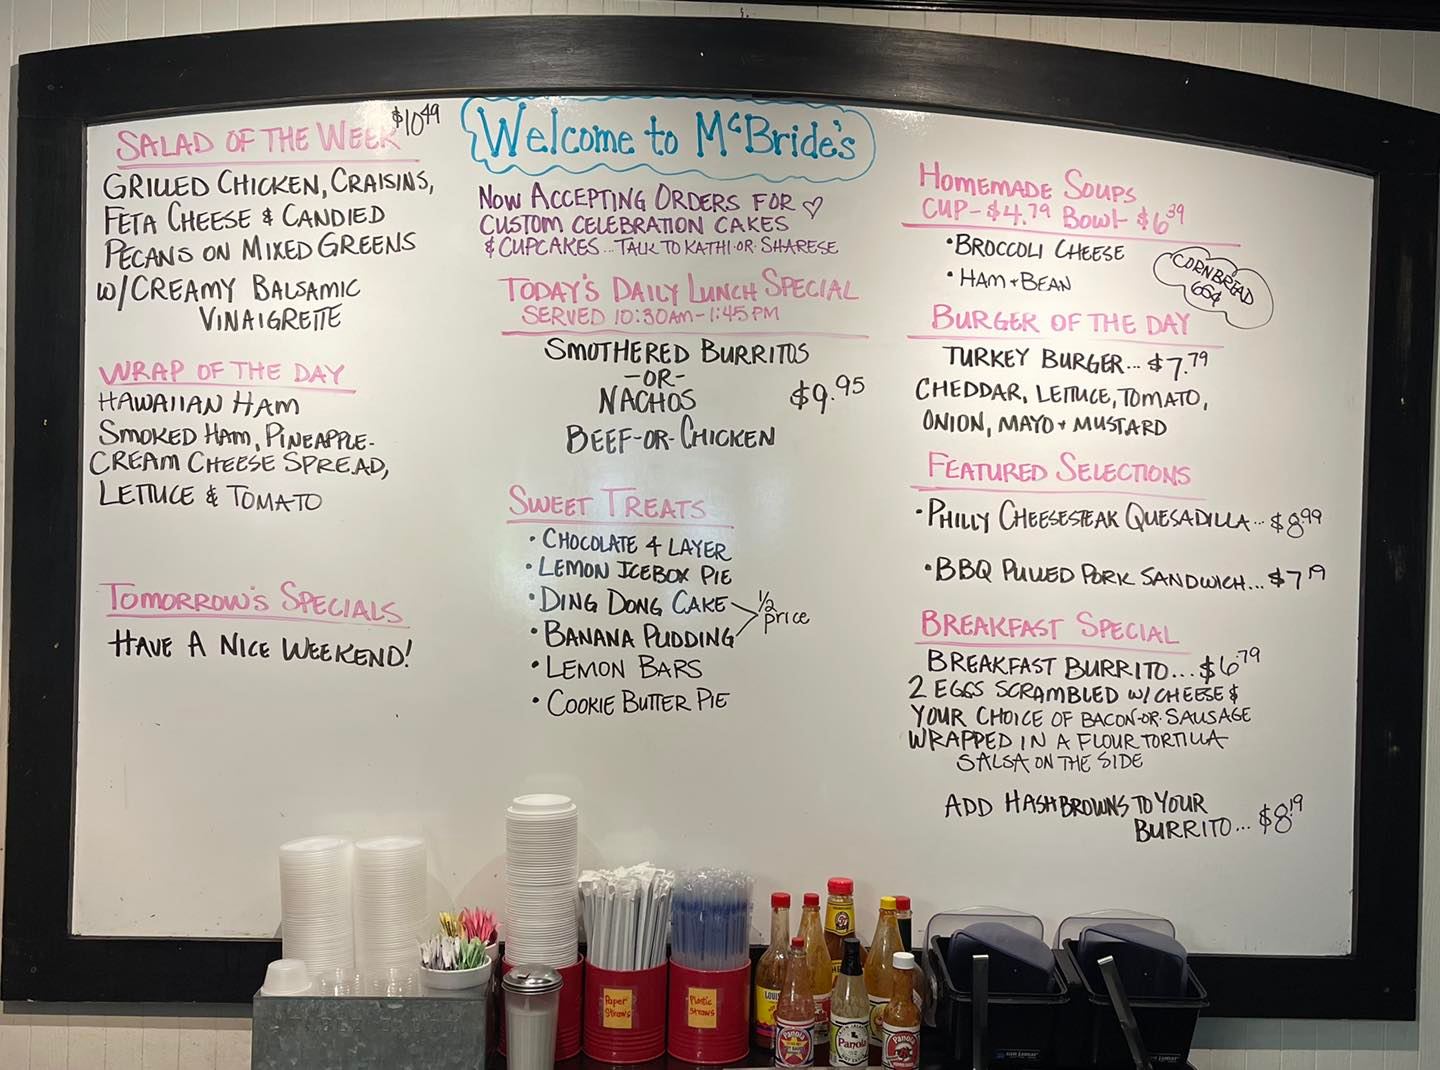 SALAD OF THE WEEK $10.49
GRILLED CHICKEN, CRAISINS,
FETA CHEESE & CANDIED
PECANS ON MIXED GREENS
W/CREAMY BALSAMIC
VINAIGRETTE
WRAP OF THE DAY
HAWAIIAN HAM
SMOKED HAM, PINEAPPLE-
CREAM CHEESE SPREAD,
LETTUCE & TOMATO
TOMORROW'S SPECIALS
HAVE A NICE WEEKEND!
Welcome to McBride's
NOW ACCEPTING ORDERS FOR ♡
CUSTOM CELEBRATION CAKES
& CUPCAKES... TALK TO KATHI OR SHARESE
TODAY'S DAILY LUNCH SPECIAL
SERVED 10:30AM-1:45PM
SMOTHERED BURRITOS
-OR-
NACHOS $9.95
BEEF-OR-CHICKEN
SWEET TREATS
• CHOCOLATE 4 LAYER
• LEMON ICEBOX PIE
• DING DONG CAKE
• BANANA PUDDING
1/2 price
• LEMON BARS
• COOKIE BUTTER PIE
HOMEMADE SOUPS
CUP-$4.79 BOWL-$6.39
• BROCCOLI CHEESE
• HAM + BEAN
CORNBREAD
65¢
BURGER OF THE DAY
TURKEY BURGER... $7.79
CHEDDAR, LETTUCE, TOMATO,
ONION, MAYO + MUSTARD
FEATURED SELECTIONS
• PHILLY CHEESESTEAK QUESADILLA... $8.99
• BBQ PULLED PORK SANDWICH... $7.19
BREAKFAST SPECIAL
BREAKFAST BURRITO... $6.79
2 EGGS SCRAMBLED W/CHEESE &
YOUR CHOICE OF BACON-OR-SAUSAGE
WRAPPED IN A FLOUR TORTILLA
SALSA ON THE SIDE
ADD HASHBROWNS TO YOUR
BURRITO... $8.19
Paper
Straws
Plastic
Straws
Panola
Panola
Panola